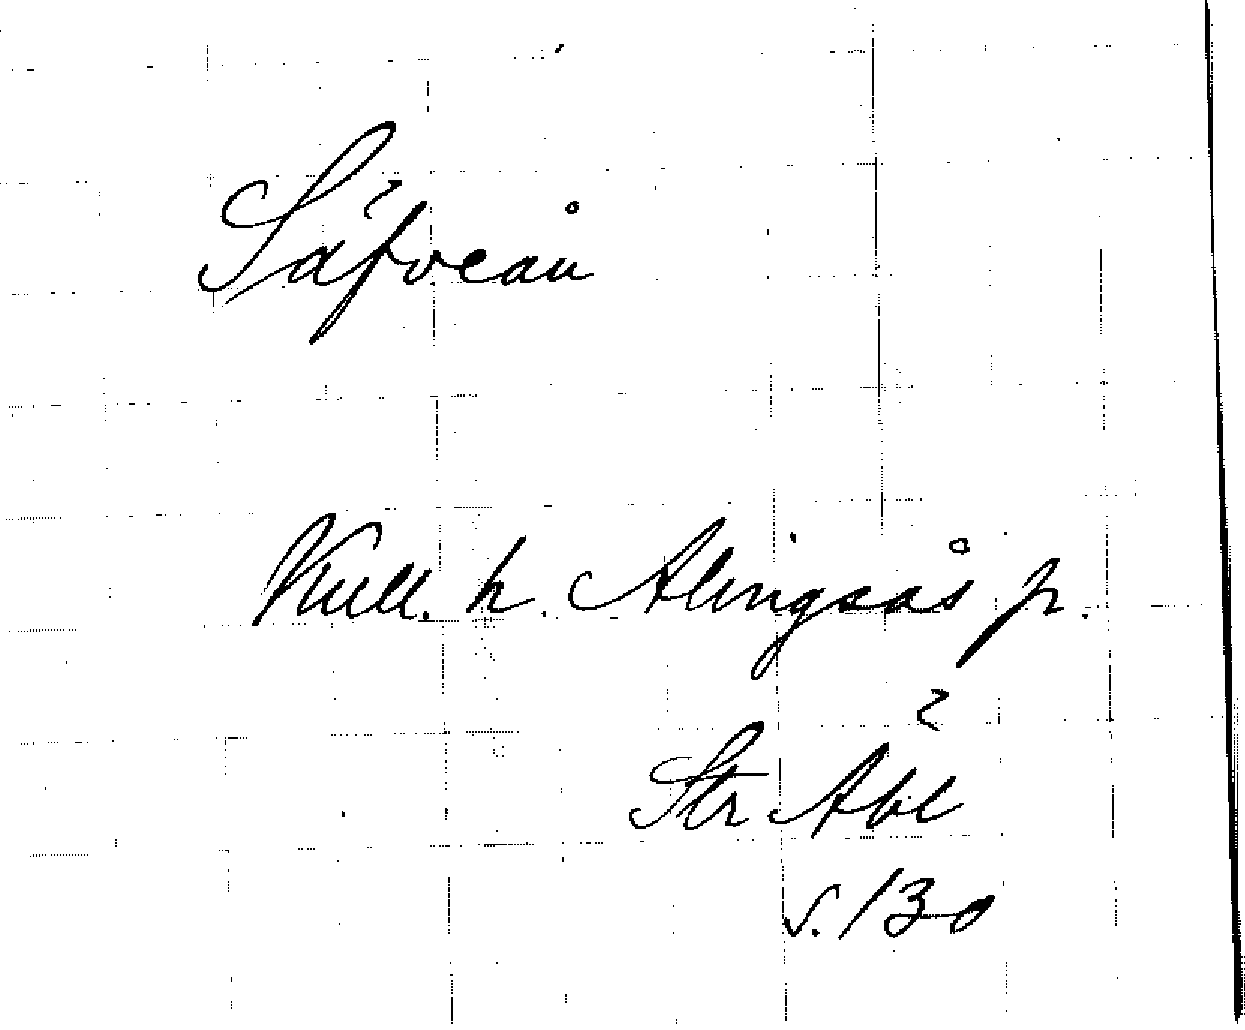 Säfveån
Kull. h. Alingsås p.
Str Äbl
s. 130